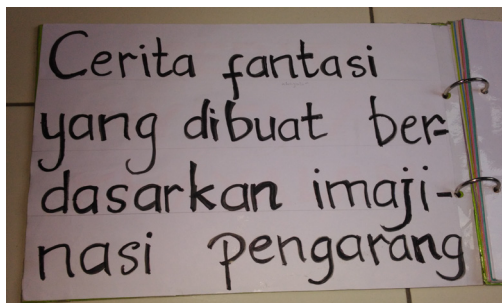 Cerita fantasi
yang dibuat ber-
dasarkan imaji-
nasi pengarang